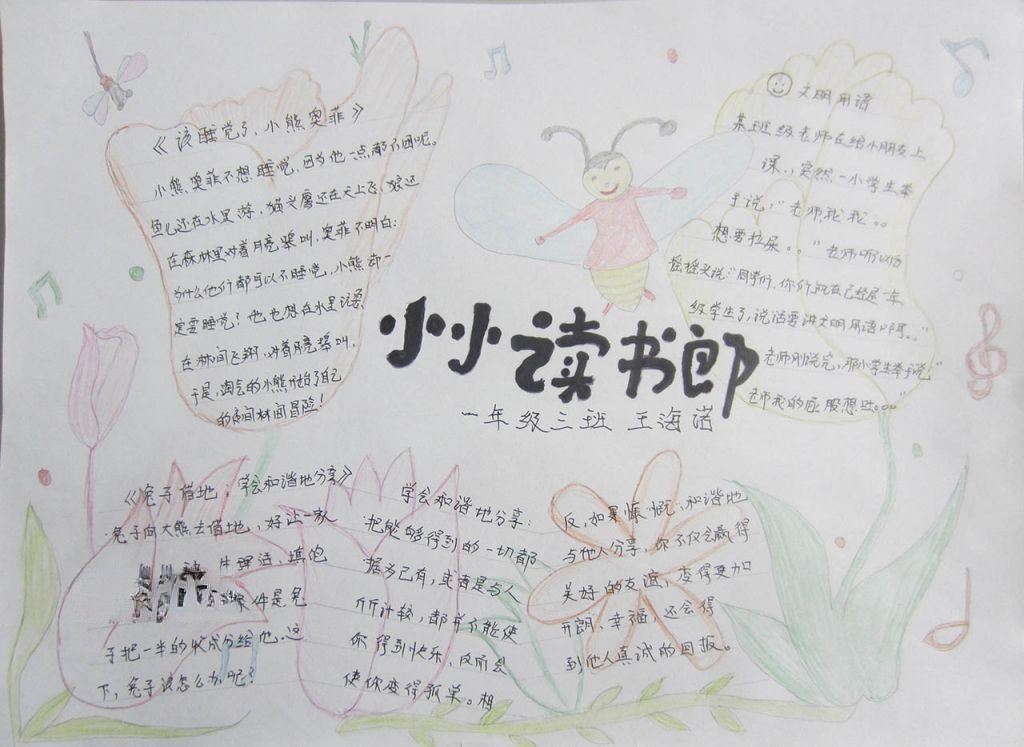 《该睡觉了,小熊奥菲》
小熊奥菲不想睡觉,因为他一点都不困呢。
鱼儿还在水里游,猫头鹰还在天上飞,狼还
在森林里对着月亮嗥叫,奥菲不明白:
为什么他们都可以不睡觉,小熊却一
定要睡觉?他也想在水里
在林间飞翔,对着月亮嗥叫,
于是,淘气的小熊开始了自己
的夜间林间冒险!
文明用语
某班级老师在给小朋友上
课,突然一小学生举
手说:“老师我我。。
想要拉屎。。”老师听以后
摇摇头说:“同学们,你们现在已经是一年
级学生了,说话要讲文明用语
老师刚说完,那小学生举手说:“
老师我的屁股想吐。。。”
小小读书郎
一年级三班 王海诺
《兔子借地;学会和谐地分享》
兔子向大熊去借地,好让一家
填饱
条件是兔
子把一半的收成分给他。这
下,兔子该怎么办呢?
学会和谐地分享:
把能够得到的一切都
据为己有,或者是与人
斤斤计较,都并不能使
你得到快乐,反而会
使你变得孤单。相
反,如果慷慨,和谐地
与他人分享,你不仅会赢得
美好的友谊,变得更加
开朗、幸福,还会得
到他人真诚的回报。